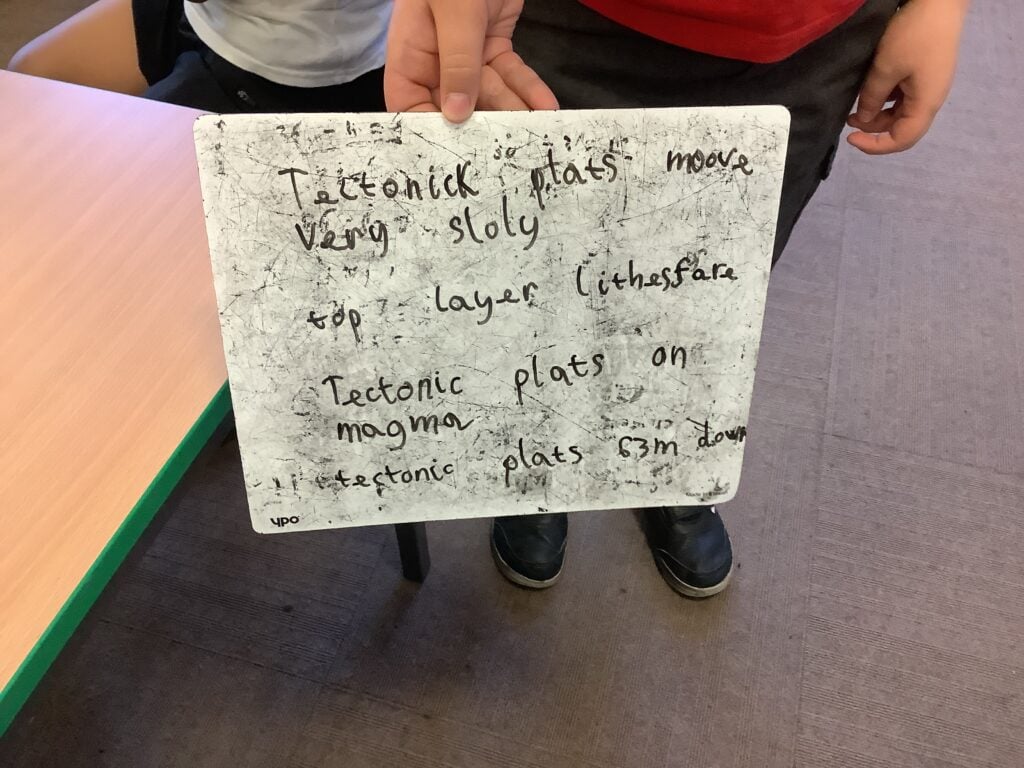 Tectonick plats moove
very sloly
top layer lithesfare
Tectonic plats on
magma
tectonic plats 63m down
ypo